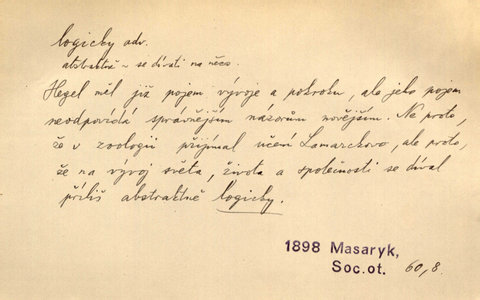 logicky adv.
abstraktně ~ se dívati na něco.
Hegel měl již pojem vývoje a pokroku, ale jeho pojem
neodpovídá správnějším názorům novějším. Ne proto,
že v zoologii přijímal učení Lamarckovo, ale proto,
že na vývoj světa, života a společnosti se díval
příliš abstraktně logicky.
1898 Masaryk,
Soc.ot. 60,8.